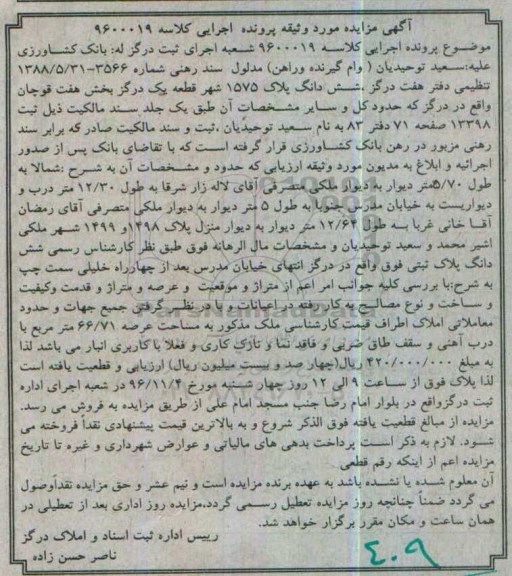 آگهی مزایده مورد وثیقه پرونده اجرایی کلاسه ۹۶۰۰۰۱۹
موضوع پرونده اجرایی کلاسه ۹۶۰۰۰۱۹ شعبه اجرای ثبت درگز له: بانک کشاورزی
علیه:سعید توحیدیان ( وام گیرنده وراهن) مدلول سند رهنی شماره ۳۵۶۶-۱۳۸۸/۵/۳۱
تنظیمی دفتر هفت درگز .شش دانگ پلاک ۱۵۷۵ شهر قطعه یک درگز بخش هفت قوچان
واقع در درگز که حدود کل و سایر مشخصات آن طبق یک جلد سند مالکیت ذیل ثبت
۱۳۳۹۸ صفحه ۷۱ دفتر ۸۳ به نام سعید توحیدیان .ثبت و سند مالکیت صادر که برابر سند
رهنی مزبور در رهن بانک کشاورزی قرار گرفته است که با تقاضای بانک پس از صدور
اجرائیه و ابلاغ به مدیون مورد وثیقه ارزیابی که حدود و مشخصات آن به شرح :شمالا به
طول ۵/۷۰متر دیوار به دیوار ملکی متصرفی آقای لاله زار شرقا به طول ۱۲/۳۰ متر درب و
دیواریست به خیابان مدرس جنوبا به طول ۵ متر دیوار به دیوار ملکی متصرفی آقای رمضان
آقا خانی غربا به طول ۱۲/۶۴ متر دیوار به دیوار منزل پلاک ۱۴۹۸و ۱۴۹۹ شهر ملکی
اشیر محمد و سعید توحیدیان و مشخصات مال الرهانه فوق طبق نظر کارشناس رسمی شش
دانگ پلاک ثبتی فوق واقع در درگز انتهای خیابان مدرس بعد از چهارراه خلیلی سمت چپ
به شرح:با بررسی کلیه جوانب امر اعم از متراژ و موقعیت و عرصه و متراژ و قدمت وکیفیت
و ساخت و نوع مصالح به کار رفته در اعیانات ، با در نظر گرفتن جمیع جهات و حدود
معاملاتی املاک اطراف قیمت کارشناسی ملک مذکور به مساحت عرصه ۶۶/۷۱ متر مربع با
درب آهنی و سقف طاق ضربی و فاقد نما و نازک کاری و فعلا با کاربری انبار می باشد لذا
به مبلغ ۴۲۰/۰۰۰/۰۰۰ ریال(چهار صد و بیست میلیون ریال) ارزیابی و قطعیت یافته است
لذا پلاک فوق از ساعت ۹ الی ۱۲ روز چهار شنبه مورخ ۹۶/۱۱/۴ در شعبه اجرای اداره
ثبت درگزواقع در بلوار امام رضا جنب مسجد امام علی از طریق مزایده به فروش می رسد.
مزایده از مبالغ قطعیت یافته فوق الذکر شروع و به بالاترین قیمت پیشنهادی نقدا فروخته می
شود. لازم به ذکر است پرداخت بدهی های مالیاتی و عوارض شهرداری و غیره تا تاریخ
مزایده اعم از اینکه رقم قطعی
آن معلوم شده یا نشده باشد به عهده برنده مزایده است و نیم عشر و حق مزایده نقداًوصول
می گردد ضمناً چنانچه روز مزایده تعطیل رسمی گردد،مزایده روز اداری بعد از تعطیلی در
همان ساعت و مکان مقرر برگزار خواهد شد.
رییس اداره ثبت اسناد و املاک درگز
ناصر حسن زاده
۴۰۹